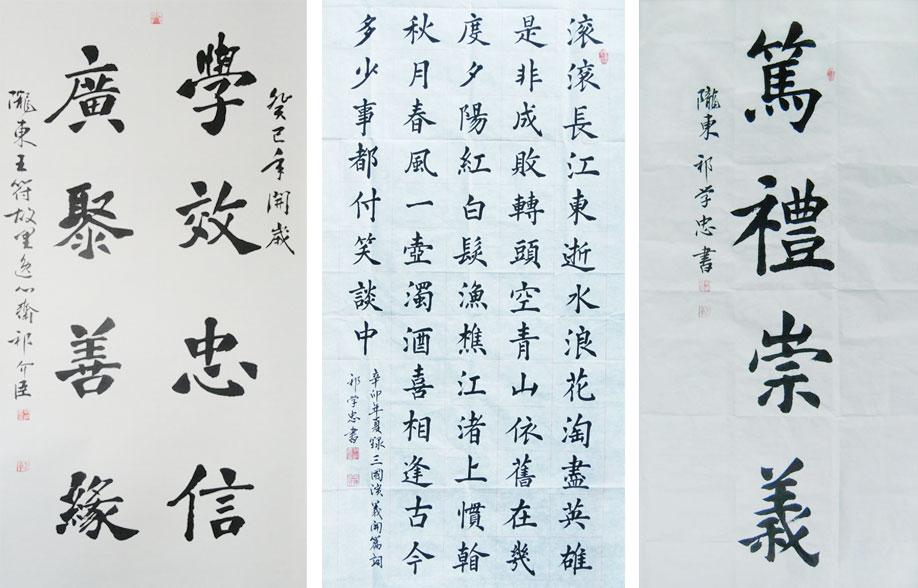 癸巳年開歲
學效忠信
廣聚善緣
隴東王符故里逸心齋祁介臣
滾滾長江東逝水浪花淘盡英雄
是非成敗轉頭空青山依舊在幾
度夕陽紅白髮漁樵江渚上慣
秋月春風一壺濁酒喜相逢古今
多少事都付笑談中
辛卯年夏錄三國演義開篇詞
祁学忠書
篤禮崇義
隴東祁学忠書